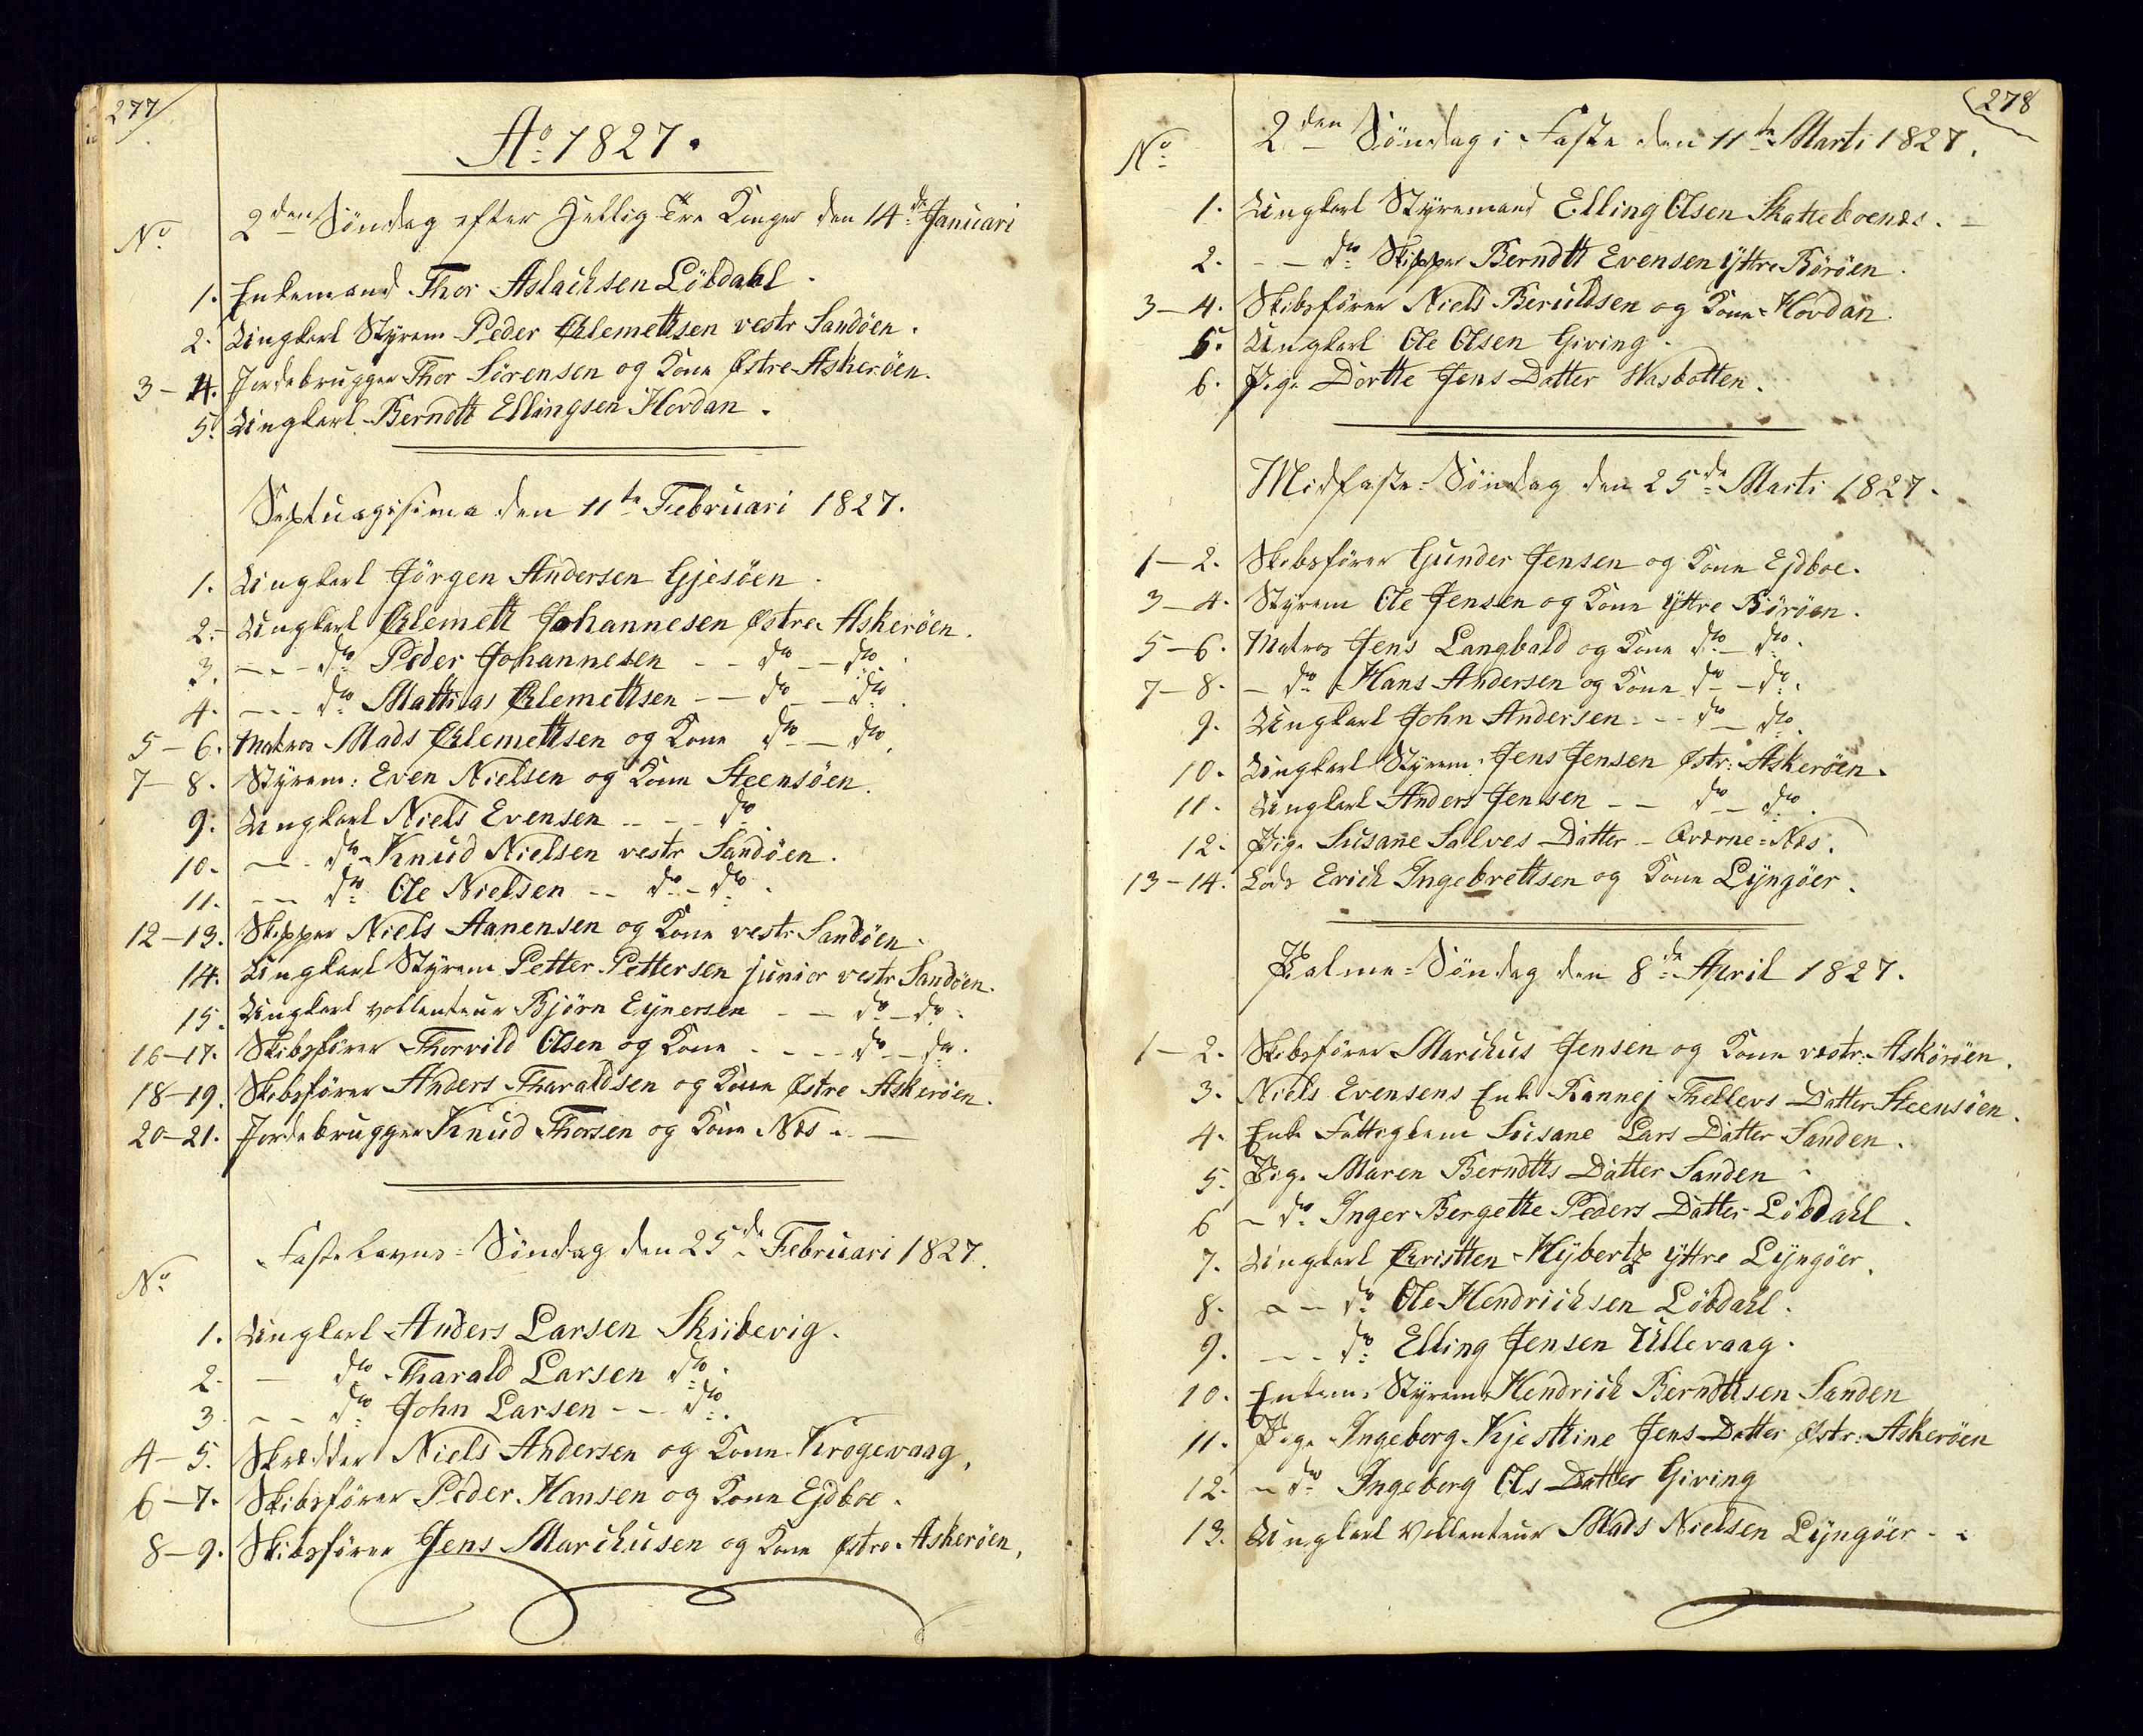 277
Ao 1827.
No 2den Söndag efter Hellig Tre Konger den 14de Januari
1. Enkemand Thor Aslachsen Löbdahl.
2. Ungkarl Styrem Peder Clemettsen vestr Sandöen.
3-4. Jordebrugger Thor Sörensen og Kone Østre Askeröen.
5. Ungkarl Berndtt Ellingsen Hovdan.
Septuagisima den 11te Februari 1827.
1. Ungkarl Jörgen Andersen Gjesöen.
2. Ungkarl Clemett Johannesen Østre Askeröen.
3. --- do Peder Johannesen -- do -- do.
4. --- do Mattias Clemettsen -- do -- do.
5-6. Matros Mads Clemettsen og Kone do - do.
7-8. Styrem: Even Nielsen og Kone Steensöen.
9. Ungkarl Niels Evensen --- do
10. -- do Knud Nielsen vestr Sandöen.
11. -- do Ole Nielsen -- do - do.
12-13. Skipper Niels Aanensen og Kone vestr Sandöen.
14. Ungkarl Styrem Petter Pettersen junior vestr Sandöen.
15. Ungkarl vollenteur Bjørn Eynersen -- do - do.
16-17. Skibsförer Thorvild Olsen og Kone ---- do - do.
18-19. Skibsförer Anders Tharaldsen og Kone Østre Askeröen.
20-21. Jordebrugger Knud Thorsen og Kone Næs. -
Fastelavns=Söndag den 25de Februari 1827.
No
1. Ungkarl Anders Larsen Skiibevig.
2. - do Tharald Larsen do.
3. -- do John Larsen --- do.
4-5. Skrædder Niels Andersen og Kone Krogevaag.
6-7. Skibsförer Peder Hansen og Kone Ejdboe.
8-9. Skibsförer Jens Marchusen og Kone Østre Askeröen,
278
No 2den Söndag i Faste den 11te Marti 1827.
1. Ungkarl Styremand Elling Olsen Skatteboenæs. -
2. -- do Skipper Berndtt Evensen Yttre Böröen.
3-4. Skibsförer Niels Beruldsen og Kone Hovdan.
5. Ungkarl Ole Olsen Giving.
6. Pige Dortte Jens Datter Wasbotten.
Midfaste=Söndag den 25de Marti 1827.
1-2. Skibsförer Gunder Jensen og Kone Ejdboe.
3-4. Styrem Ole Jensen og Kone Yttre Böröen.
5-6. Matros Jens Langbald og Kone do - do.
7-8. - do Hans Andersen og Kone do - do.
9. Ungkarl John Andersen --- do - do.
10. Ungkarl Styrem: Jens Jensen Østr: Askeröen.
11. Ungkarl Anders Jensen -- do - do.
12. Pige Susane Salves Datter - Qværne=Næs.
13-14. Lods Erich Ingebrettsen og Kone Lyngöer.
Palme=Söndag den 8de April 1827.
1-2. Skibsförer Marchus Jensen og Kone vestr: Asköröen.
3. Niels Evensens Enke Rannej Thellevs Datter Steensöen.
4. Enke Fattiglem Susane Lars Datter Sanden.
5. Pige Maren Berndtts Datter Sanden
6 - do Inger Bergette Peders Datter Löbdahl.
7. Ungkarl Cristten Hybertz yttre Lyngöer.
8. -- do Ole Hendrichsen Löbdahl.
9. --- do Elling Jensen Ullevaag.
10. Enkem: Styrem: Hendrich Berndttsen Sanden
11. Pige Ingeborg Kjesttine Jens Datter Østr: Askeröen
12. - do Ingeborg Ols Datter Giving
13. Ungkarl Vollenteur Mads Nielsen Lyngöer - -